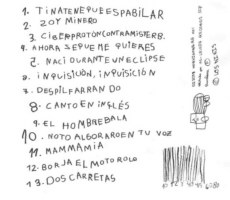 1. TINATENEPUEESPABILAR
2. ZOY MINERO
3. CIBERPROTONCONTRAMISTERB.
4. AHORA SEPUE ME QUIERES
5. NACI DURANTE UN ECLIPSE
6. INQUISICIÓN, INQUISICIÓN
7. DESPILFARRANDO
8. CANTO EN INGLÉS
9. EL HOMBREBALA
10. NOTO ALGORARO EN TU VOZ
11. MAMMAMIA
12. BORJA EL MOTOROLO
13. DOS CARRETAS